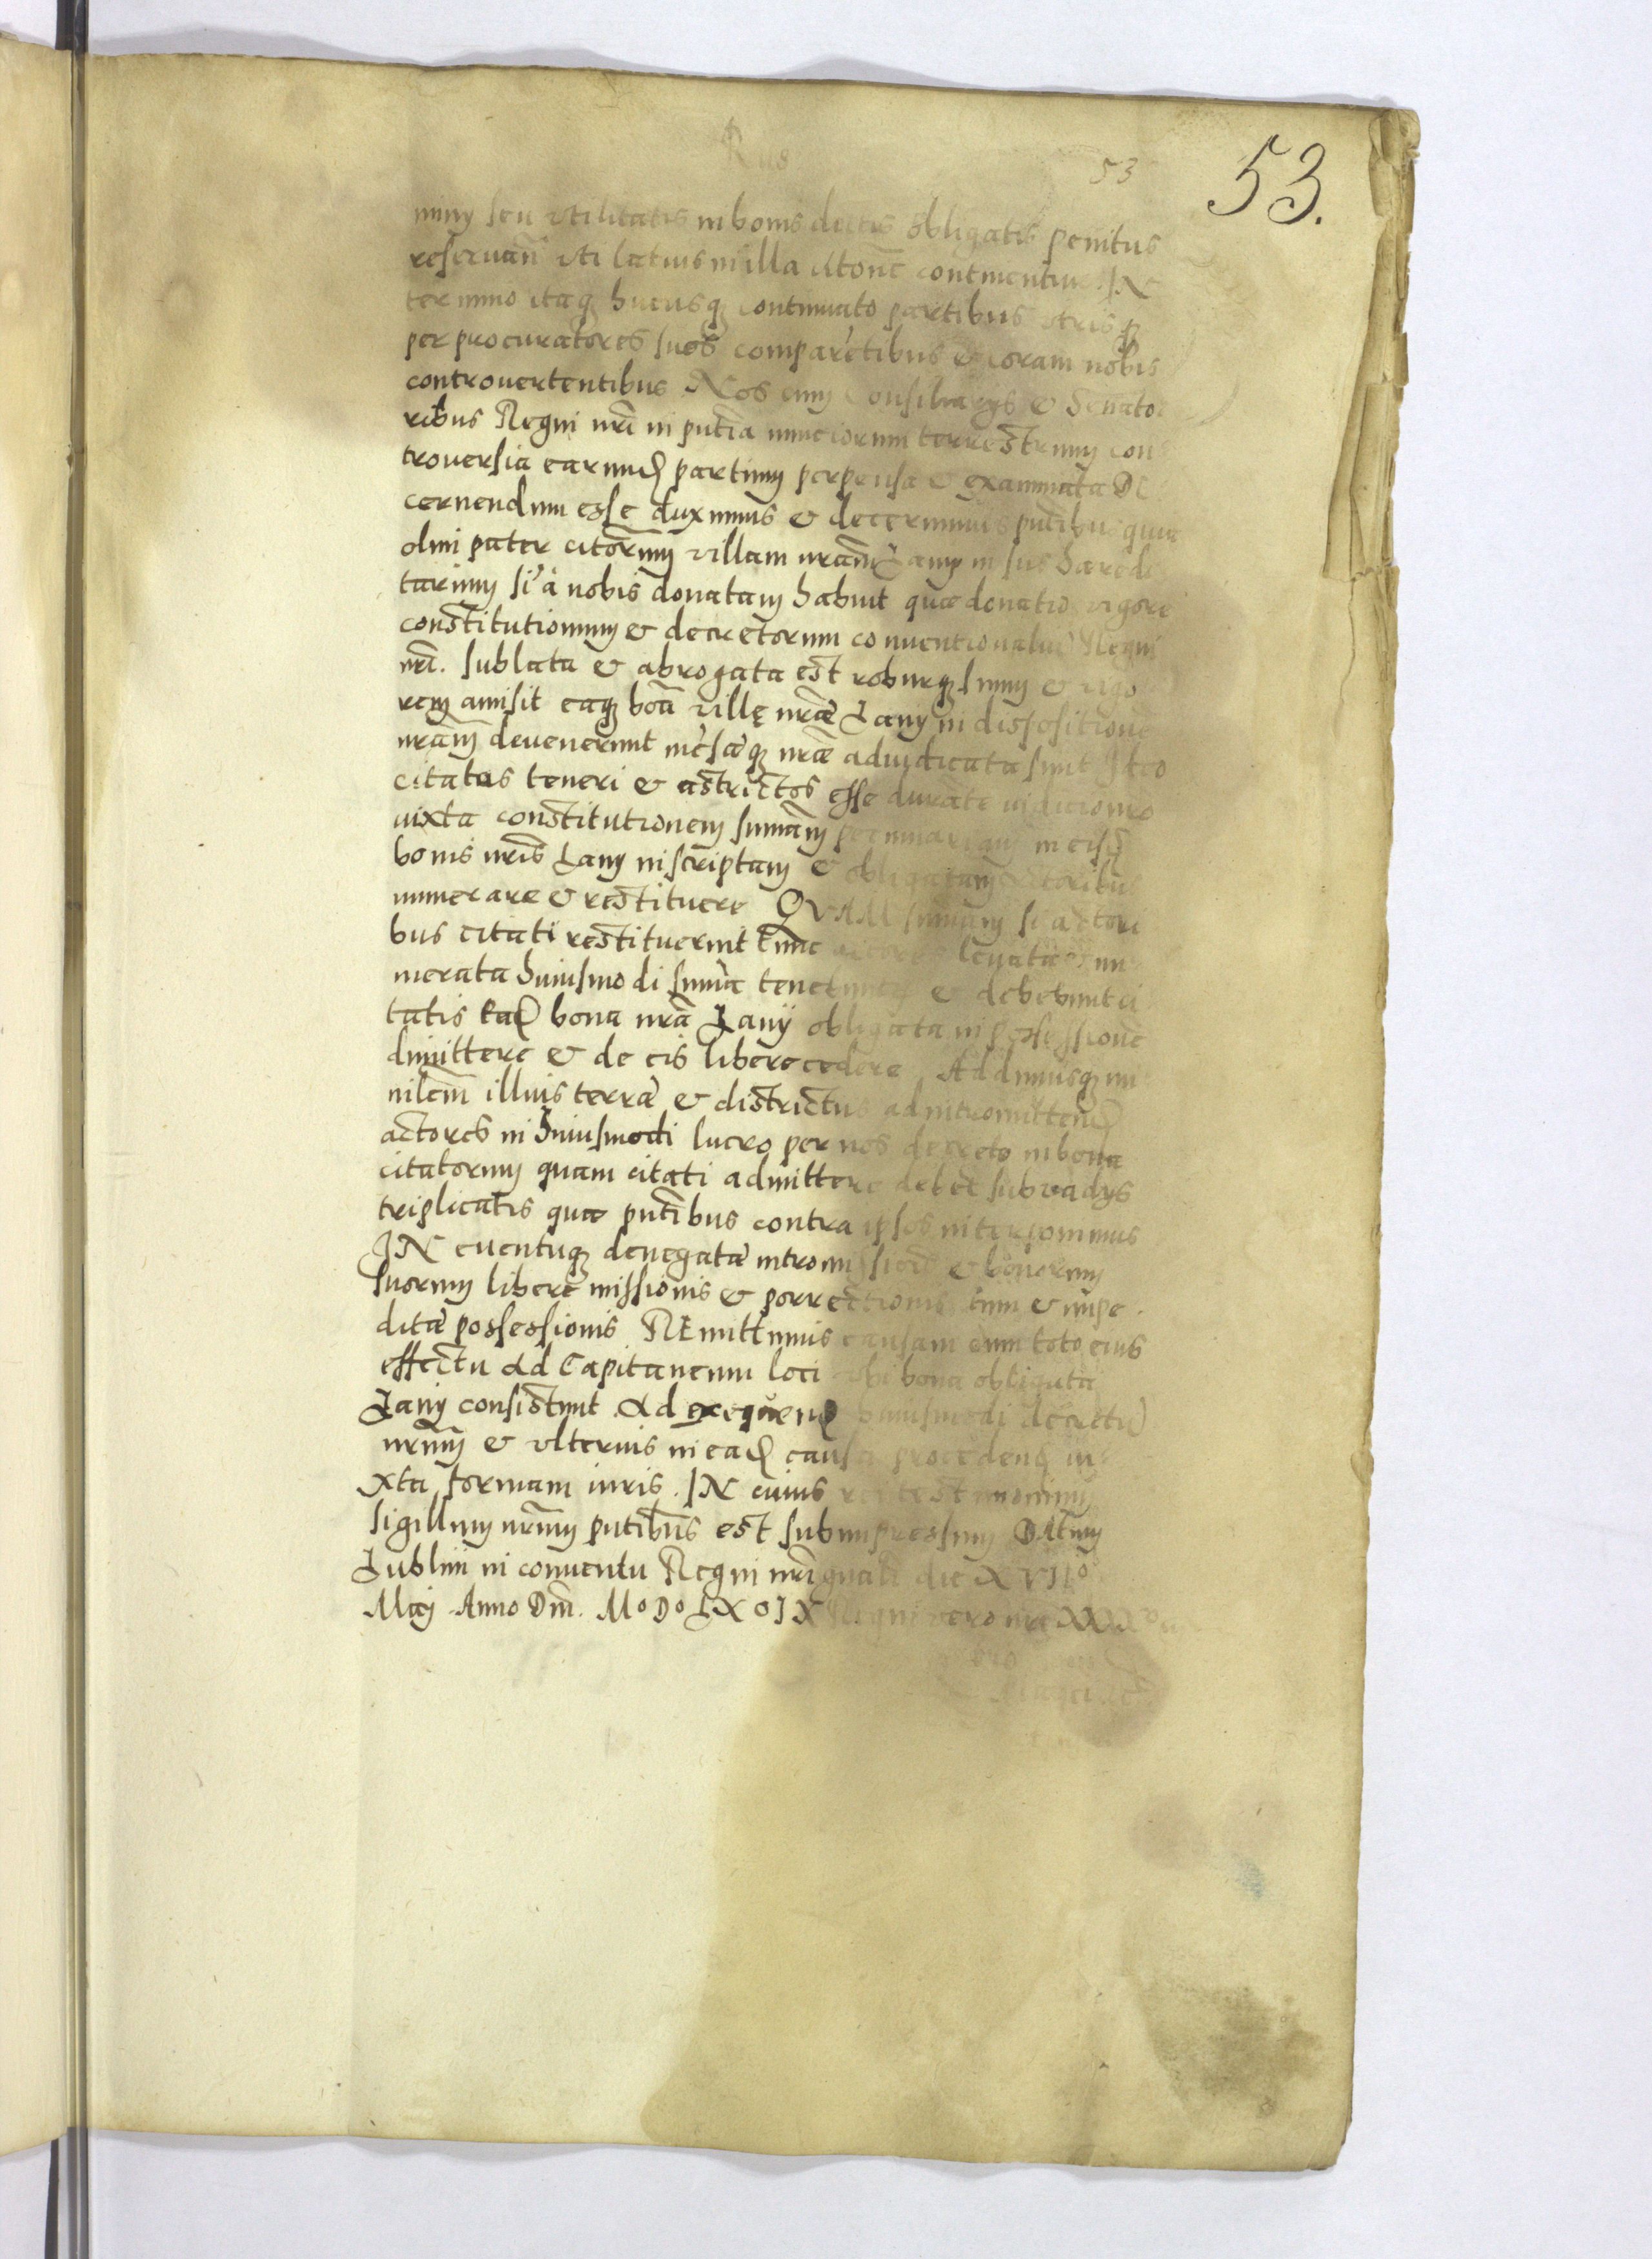 Rus
53
53.
miny seu vtilitatis in bonis dictis obligatis penitus
reseruatı vti latius in illa citone continentur. IN
termino itaq hucusq continuato partibus vtrisq
per procuratores suos comparētibus & coram nobis
controuertentibus Nos cum Consiliarys & Senato
ribus Regni nrı in pntia nunciorum terrestrium con
trouersia earund partium perpensa & examinata De
cernendum esse duximus & decernimus pntibus quia
olim pater citorum villam nram Lany in sus haredi
tarium sı à nobis donatam habuit quæ donatio vigore
constitutionum & decretorum conuentionalium Regni
nrı. sublata & abrogata est roburq suum & vigo
rem amisit eaq bona villę nræ Lany in dispositione
nram deuenerunt mensæq nræ adiudicata sunt Ideo
citatos teneri & astrictos esse durāte iudicio nro
iuxta constitutionem sumam pecuniariam in eisd
bonis nris Lany inscriptam & obligatam actoribus
numerare & restituere QVAM sumam si actori
bus citati restituerint tunc actores leuata & nu
merata huiusmodi suma tenebuntur & debebunt ci
tatis ead bona nra Lany obligata in possessione
dimittere & de eis libere cedere Addimusq mi
nilem illius terræ & districtus ad intromittend
actores in huiusmodi lucro per nos decreto in bona
citatorum quam citati admittere debet sub vadys
triplicatis quæ pntibus contra ipsos interponimus
IN euentuq denegatæ intromissionis & bonorum
suorum liberæ missionis & porrectionis tum & impe
ditæ possessionis REmittimus causam cum toto eius
effectu Ad Capitaneum loci vbi bona obligata
Lany consistunt Ad exequend huiusmodi decretu
nrum & vlterius in ead causa procedend iu
xta formam iuris. IN cuius rei testimonium
sigillum nrum pntibus est subimpressum DAtum
Lublini in conuentu Regni nri gnali die XVII°
Maij Anno Dni. M° D° LXOIX Regni vero nri